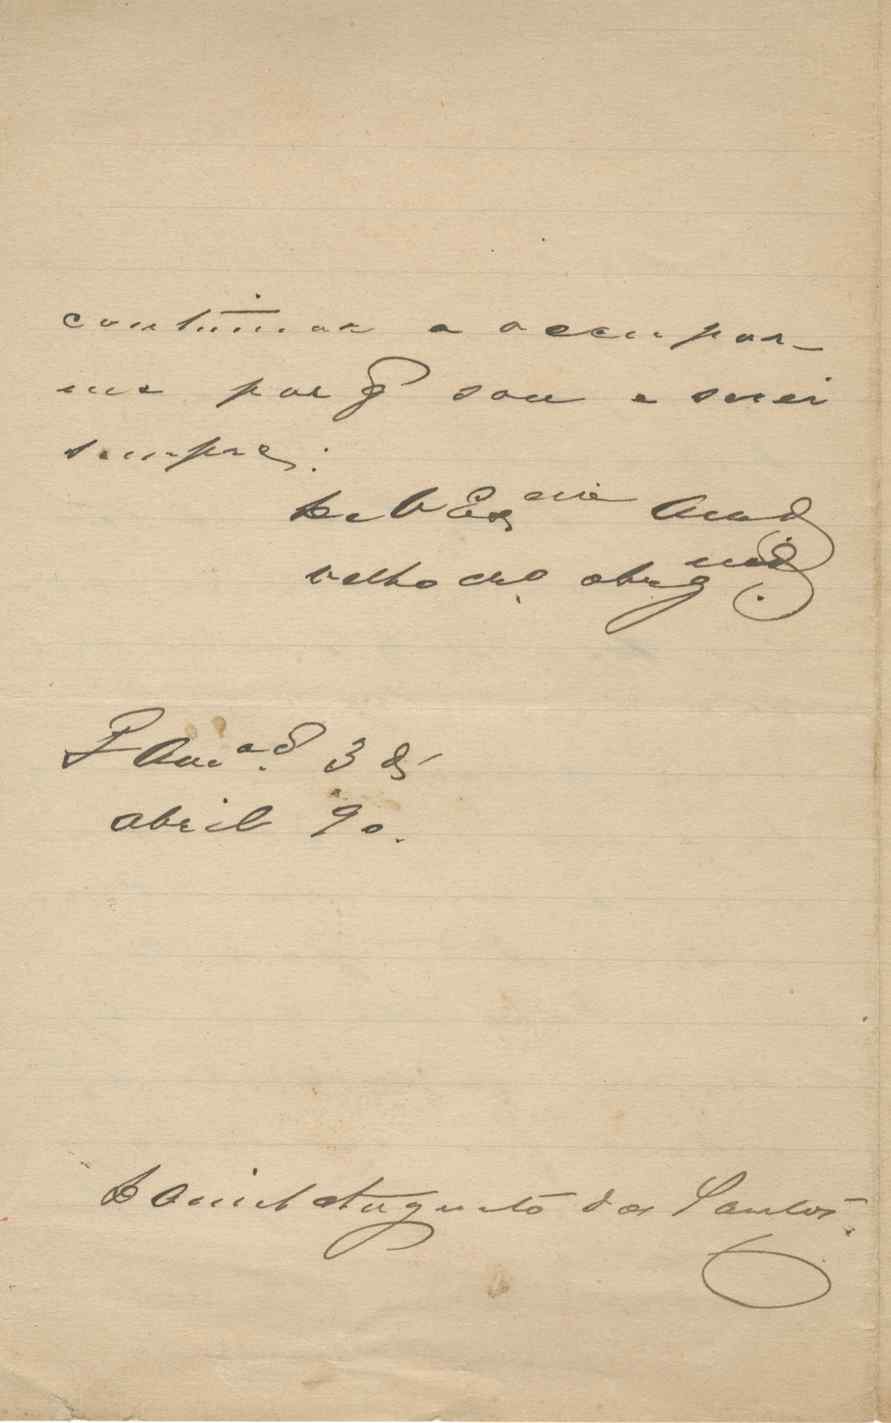 continuar a occupar-
me porq sou e serei
sempre:
De V Ex.cia Amº
velho crº obrgmº
3 de
abril 90.
Daniel Augusto dos Santos.